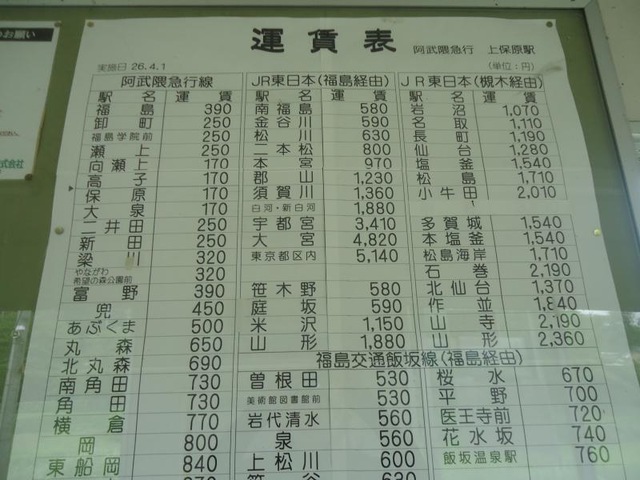 のお願い
株式会社
運賃表
阿武隈急行 上保原駅
実施日 26.4.1
(単位：円)
阿武隈急行線
駅名 運賃
福島 390
卸町 250
福島学院前 250
瀬上 250
向瀬上 170
高子 170
保原 170
大泉 170
二井田 250
新田 250
梁川 320
やながわ希望の森公園前 320
富野 390
兜 450
あぶくま 500
丸森 650
北丸森 690
南角田 730
角田 730
横倉 770
岡 800
東船岡 840
JR東日本(福島経由)
駅名 運賃
南福島 580
金谷川 590
松川 630
二本松 800
本宮 970
郡山 1,230
須賀川 1,360
白河・新白河 1,880
宇都宮 3,410
大宮 4,820
東京都区内 5,140
笹木野 580
庭坂 590
米沢 1,150
山形 1,880
JR東日本(槻木経由)
駅名 運賃
岩沼 1,070
名取 1,110
長町 1,190
仙台 1,280
塩釜 1,540
松島 1,710
小牛田 2,010
多賀城 1,540
本塩釜 1,540
松島海岸 1,710
石巻 2,190
北仙台 1,370
作並 1,840
山寺 2,190
山形 2,360
福島交通飯坂線(福島経由)
曽根田 530
美術館図書館前 530
岩代清水 560
泉 560
上松川 600
笹谷 630
桜水 670
平野 700
医王寺前 720
花水坂 740
飯坂温泉駅 760